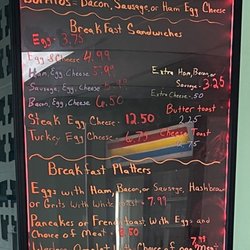 Burritos = Bacon, Sausage, or Ham Egg Cheese
Breakfast Sandwiches
Egg - 3.75
Egg & Cheese 4.99
Ham, Egg, Cheese
Sausage, Egg, Cheese
Bacon, Egg, Cheese 6.50
Extra Ham, Bacon, or
Sausage - 3.25
Extra Cheese - .50
Butter toast -
2.25
Steak Egg Cheese - 12.50
Turkey Egg Cheese - 6.75 Cheese Toast
Breakfast Platters
Eggs with Ham, Bacon, or Sausage, Hashbrown
or Grits with White toast - 7.99
Pancakes or French toast with Eggs and
Choice of Meat - 8.50
7.99
Omelet with Choice of one Meat